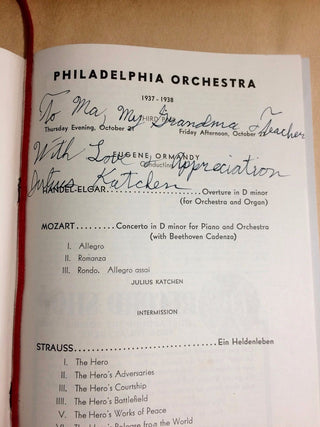 PHILADELPHIA ORCHESTRA
1937-1938
To Ma, My Grandma & Teacher
THIRD
Thursday Evening, October 21 Friday Afternoon, October 22
With Love & Appreciation
EUGENE ORMANDY
Conducting
Julius Katchen
HANDEL-ELGAR Overture in D minor
(for Orchestra and Organ)
MOZART Concerto in D minor for Piano and Orchestra
(with Beethoven Cadenza)
I. Allegro
II. Romanza
III. Rondo. Allegro assai
JULIUS KATCHEN
INTERMISSION
STRAUSS Ein Heldenleben
I. The Hero
II. The Hero's Adversaries
III. The Hero's Courtship
IIII. The Hero's Battlefield
V. The Hero's Works of Peace
VI. The Hero's Release from the World